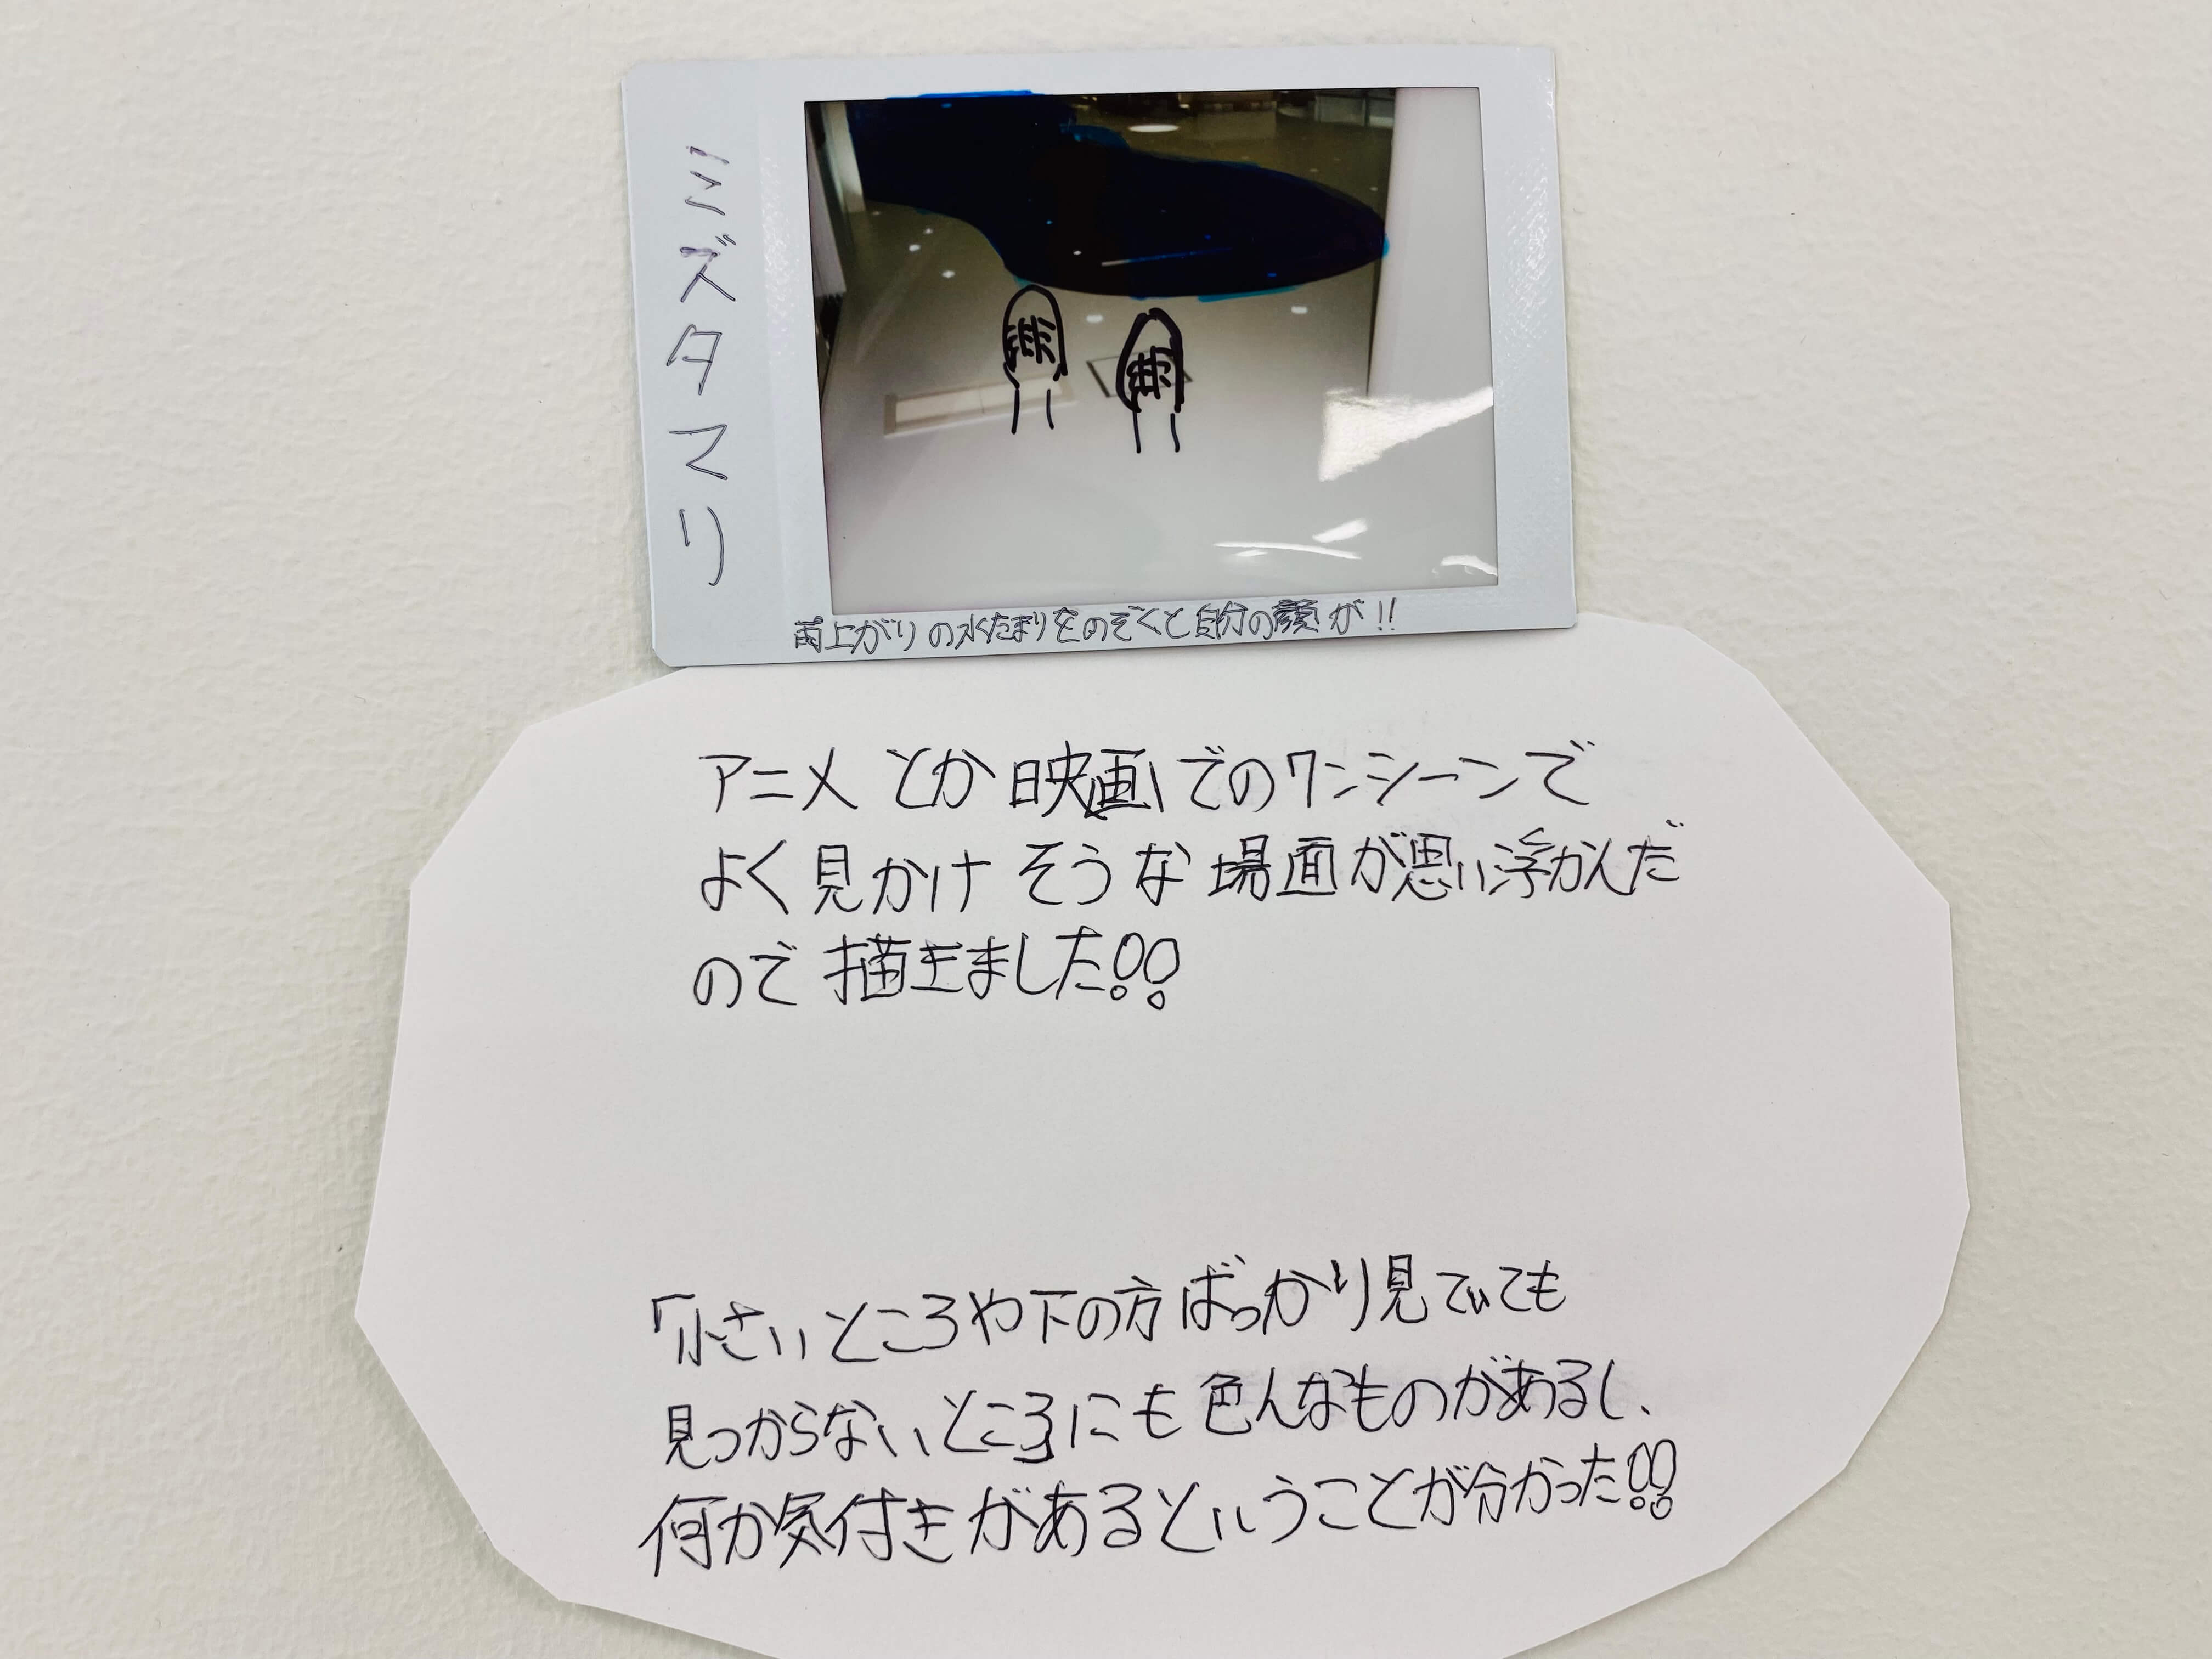 ミズタマリ
雨上がりの水たまりをのぞくと自分の顔が!!
アニメとか映画でのワンシーンで
よく見かけそうな場面が思い浮かんだ
ので描きました!!
「小さいところや下の方ばっかり見ていても
見つからないところにも色んなものがあるし、
何か気付きがあるということが分かった!!